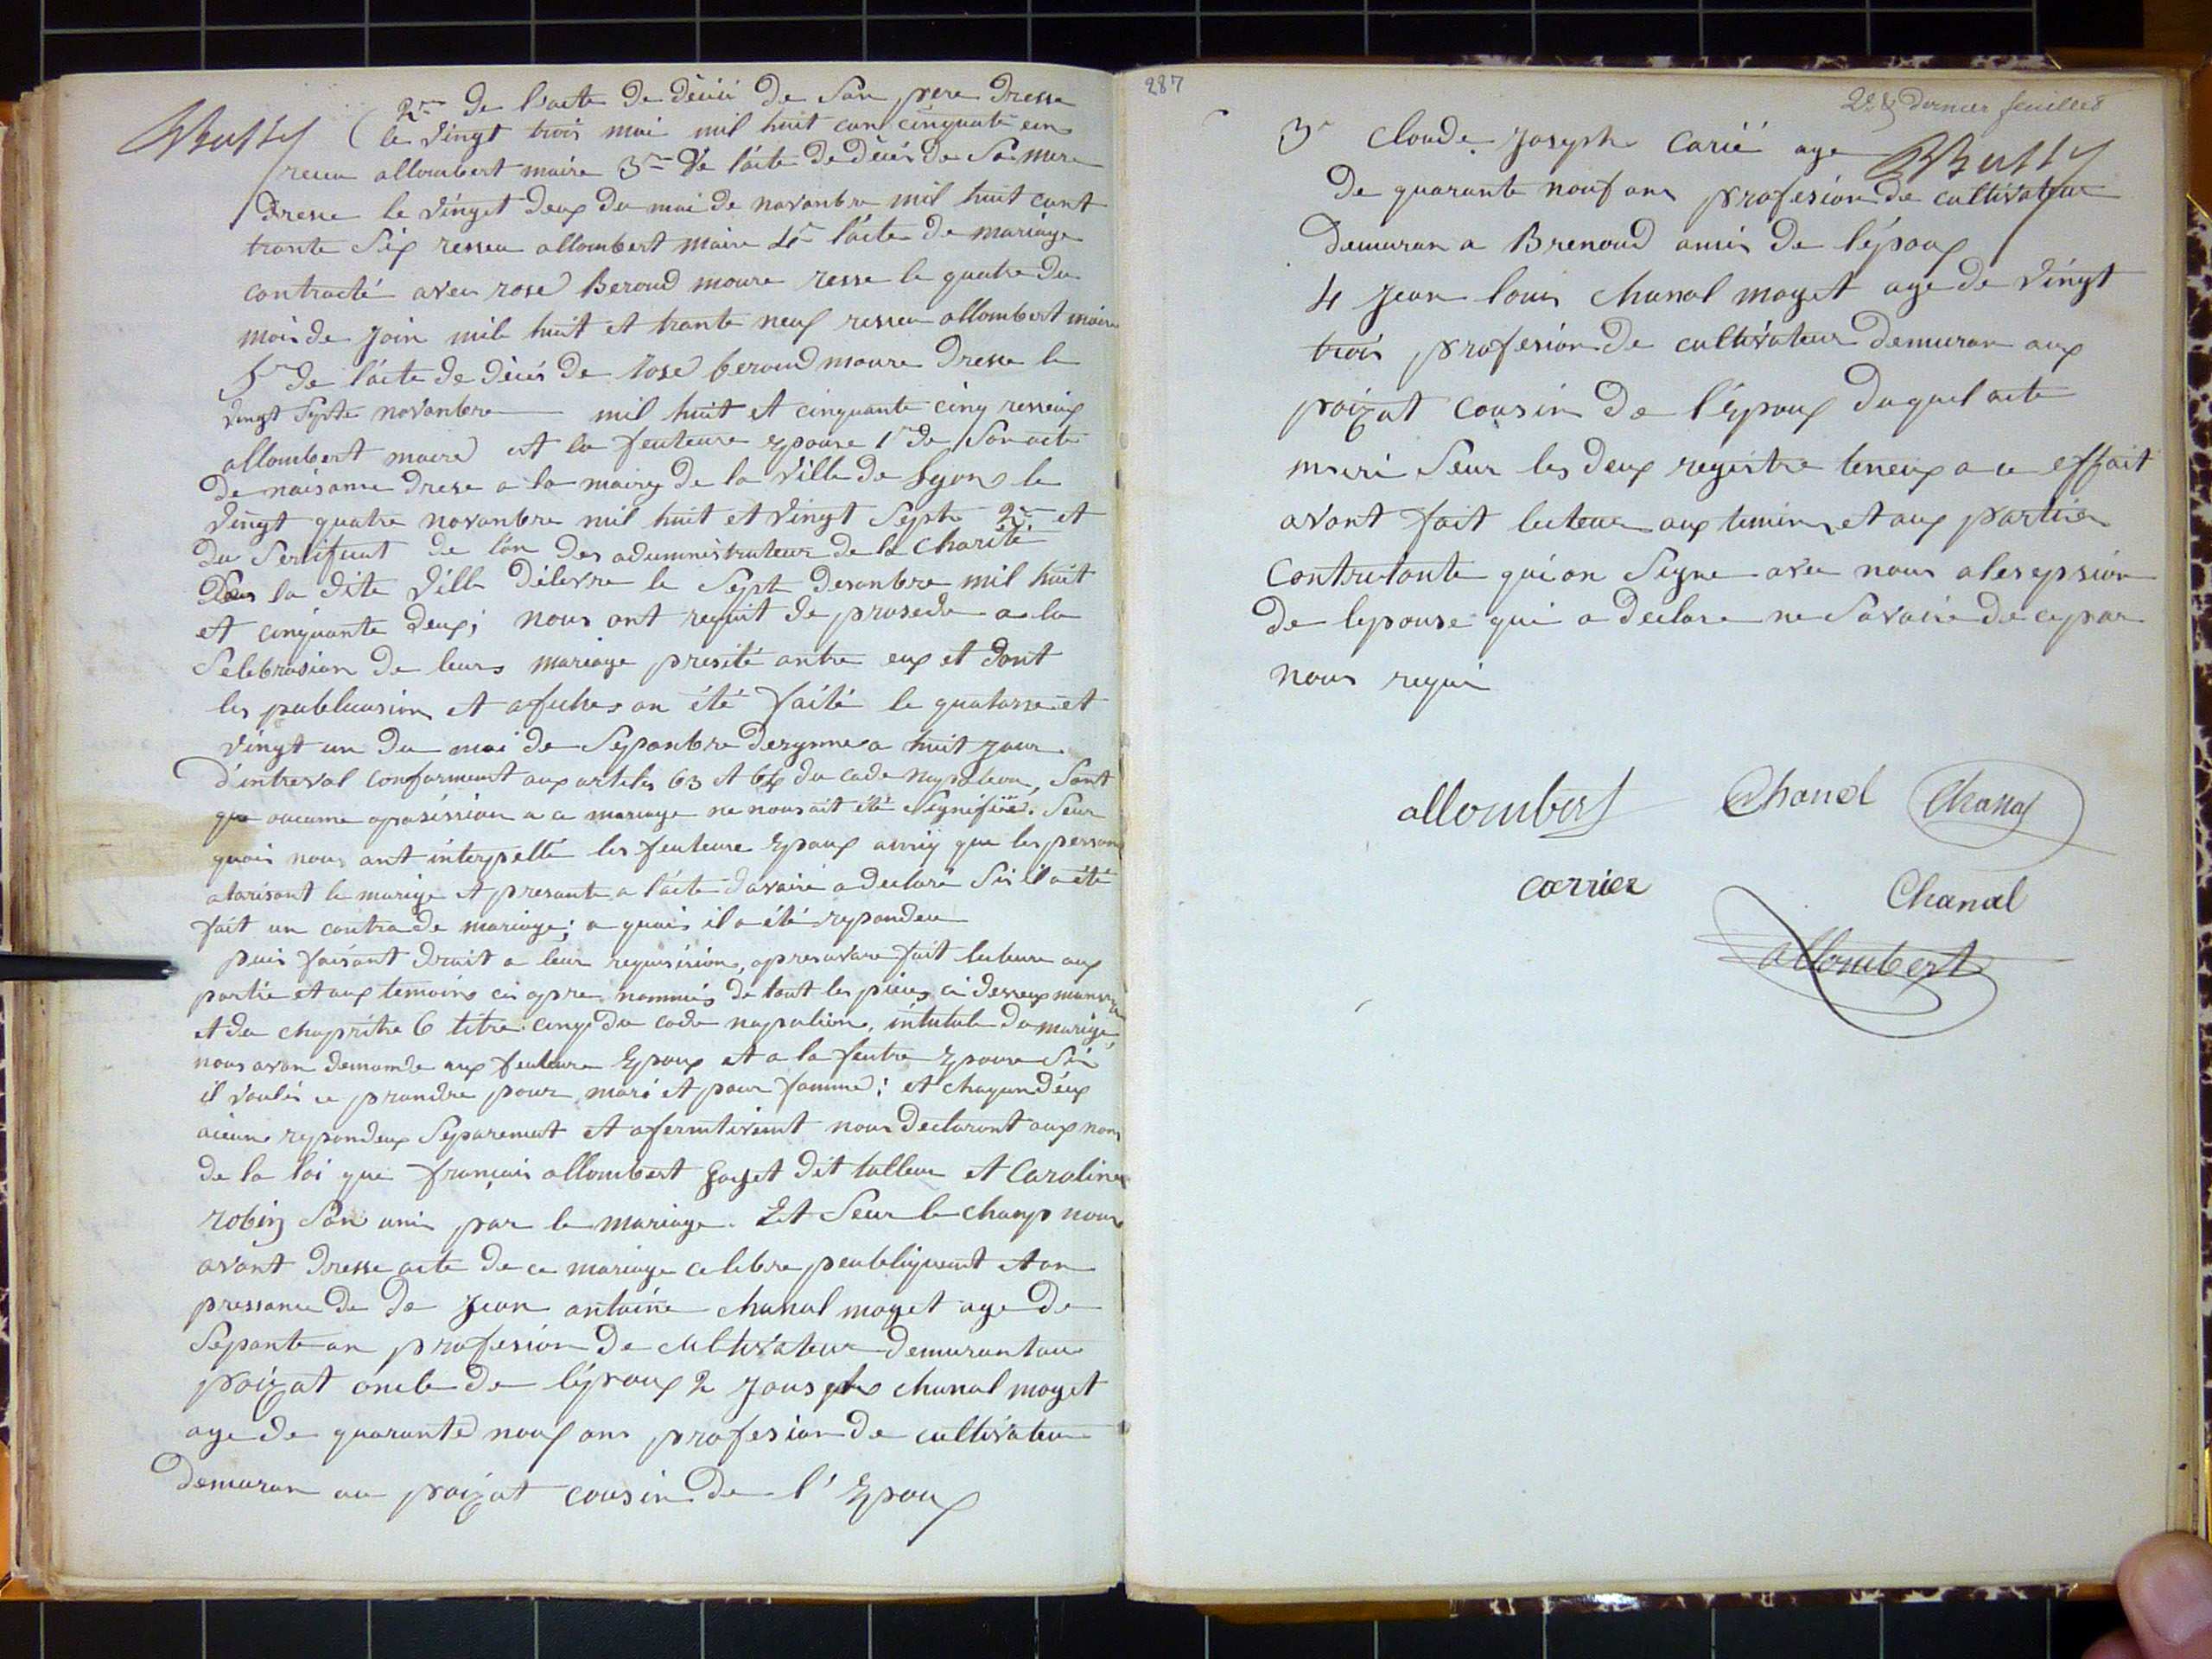 2me de l'acte de décié de San pere dresse
Bussy
le vingt trois mai mil huit can cinquante un
receu allombert maire 3me De l'acte de décés de Sa mere
Dresse le vinget deux du moi de novanbre mil huit cant
trante Six resseu allombert maire 4e l'acte de mariage
contracté avec rose Beroud moure resse le quatre du
mois de Join mile huit et trante neuf resseu allombert maire
5me de l'acte de décés de rose beroud moure Dresse le
vingt Septe novanbre mil huit et cinquante cinq resseux
allombert maire et la feuteure epouse 1re de Son acte
de naisanse drese a la mairy de la ville de Lyon le
vingt quatre novanbre mil huit et vingt Septe 2me et
du Sertificat de l'on des adeministrateur de la Charité
Dans la dite ville délevre le Sept desanbre mil huit
et cinquante deux; nous ont requit de proseder a la
Selebrasion de leurs mariage presité antre eux et dont
les pableacasion et afiches on été faité le quatorse et
vingt un du moi de Sepanbre dezynne a huit jour
d'interval conformemant aux articles 63 et 64 du code napoleon, Sant
que aucune opasission a ce mariage ne nous ait été Signifiée. Seur
quois nous ont interpellé les feuteure Epoux ainsiy que les person
atorisant le mariage et presante a l'acte davaire a declaré Si il a été
fait un contra de mariage; a quois il a été repondeu
puis faisant droit a leur requisision, apres avoire fait lecteure aux
partie et aux temoins ci apres nommés de tout les pieces ci desseux
et du chapitre 6 titre cinq du code napolion, intutule du mariage,
nous avon demande aux feuteure Epoux et a la feutre Epouse Si
il voulés ce prandre pour mari et pour famme: et chaqun d'eux
aieun repondeux Séparemant et afermtivemt nous declaront aux nom
de la loi que françois allombert goyet dit talleur et Caroline
robin Son uni par le mariage. Et Seur le champ nous
avont dresse acte de ce mariage celebre peubliquemt et an
pressance de de Jean antoine chanal moget age de
Sepante an profesion de cultivateur demurantau
poizat oncle de l'époux 2 Jouseph chanal moyet
age de quarante nouf ans profesion de cultivateur
demuran au poizat cousin de l'Epoux
287
2e & Dernier feuillet
3e Cloude Joseph Carié age
Bussy
de quarante nouf ans profesion de cultivateur
demuran a Brenoud amis de l'époux
4 Jean louis chanal moyet age de vingt
trois profesion de cultivateur demuran aux
poizat cousin de l'Epoux duquel acte
inseri Seur les deux registre teneux a ce effait
avont fait lecteur aux temins et aux partiés
Contractante qui on Signe avec nous alesepsion
de lepouse qui a declare ne Savoire de ce par
nous requi
allombert Chanal Chanal
carrier Chanal
allombert